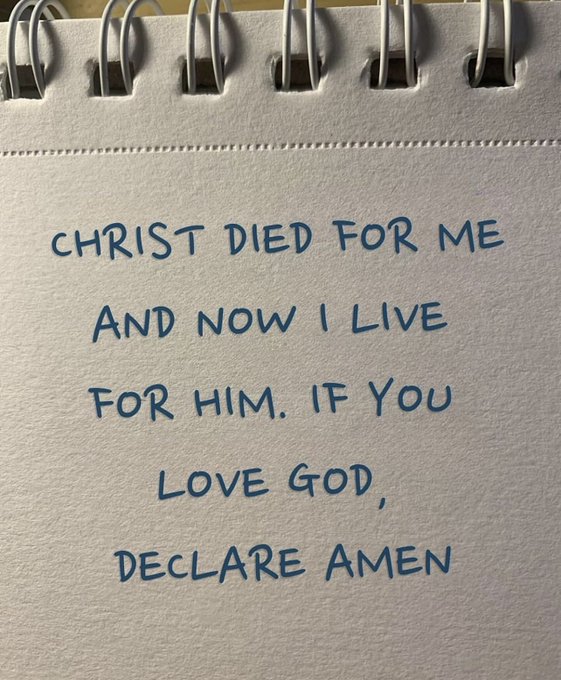 CHRIST DIED FOR ME
AND NOW I LIVE
FOR HIM. IF YOU
LOVE GOD,
DECLARE AMEN